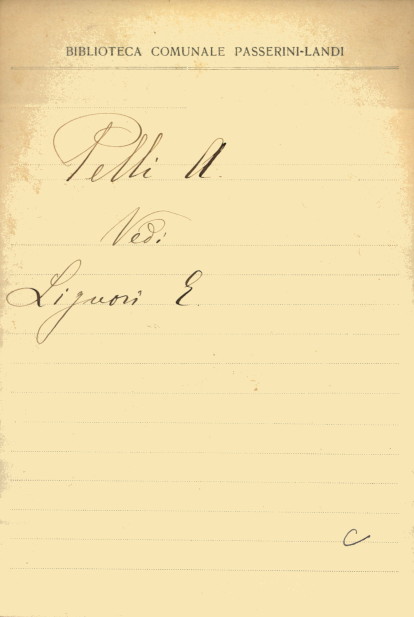 BIBLIOTECA COMUNALE PASSERINI-LANDI
Pelli A.
Vedi
Liguori E.
C